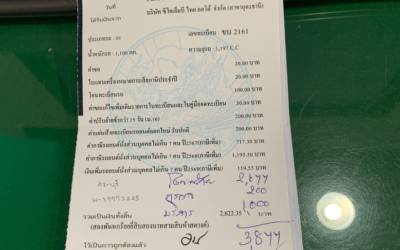 วันที่
บริษัท ซีวิลเลียนี ไทย ออโต้ จำกัด (สาขาอุดรธานี)
ได้รับเงินจาก
ประเภทรถ : รย เลขทะเบียน : ขบ 2161
น้ำหนักรถ : 1,100 กก. ความจุรถ : 1,197 C.C
ค่าขอ 20.00 บาท
ใบแทนเครื่องหมายการเสียภาษีประจำปี 20.00 บาท
โอนทะเบียนรถ 100.00 บาท
ค่าขอแก้ไขเพิ่มเติมรายการในทะเบียนและใบคู่มือจดทะเบียน 50.00 บาท
ค่าปรับแจ้งช้ากว่า 15 วัน (ม.16) 200.00 บาท
ค่าแผ่นป้ายทะเบียนรถยนต์ออกใหม่ รับปกติ 200.00 บาท
ค่าภาษีรถยนต์นั่งส่วนบุคคลไม่เกิน 7 คน ปี 2567(ภาษีเพิ่ม) 717.30 บาท
ค่าภาษีรถยนต์นั่งส่วนบุคคลไม่เกิน 7 คน ปี 2568(ภาษีเพิ่ม) 1,195.50 บาท
เงินเพิ่มรถยนต์นั่งส่วนบุคคลไม่เกิน 7 คน ปี 2567(ภาษีเพิ่ม) 119.55 บาท
2,677
200
1000
รวมเป็นเงินทั้งสิ้น 2,622.35 บาท
(สองพันหกร้อยยี่สิบสองบาทสามสิบห้าสตางค์)
3877
ไว้เป็นการถูกต้องแล้ว